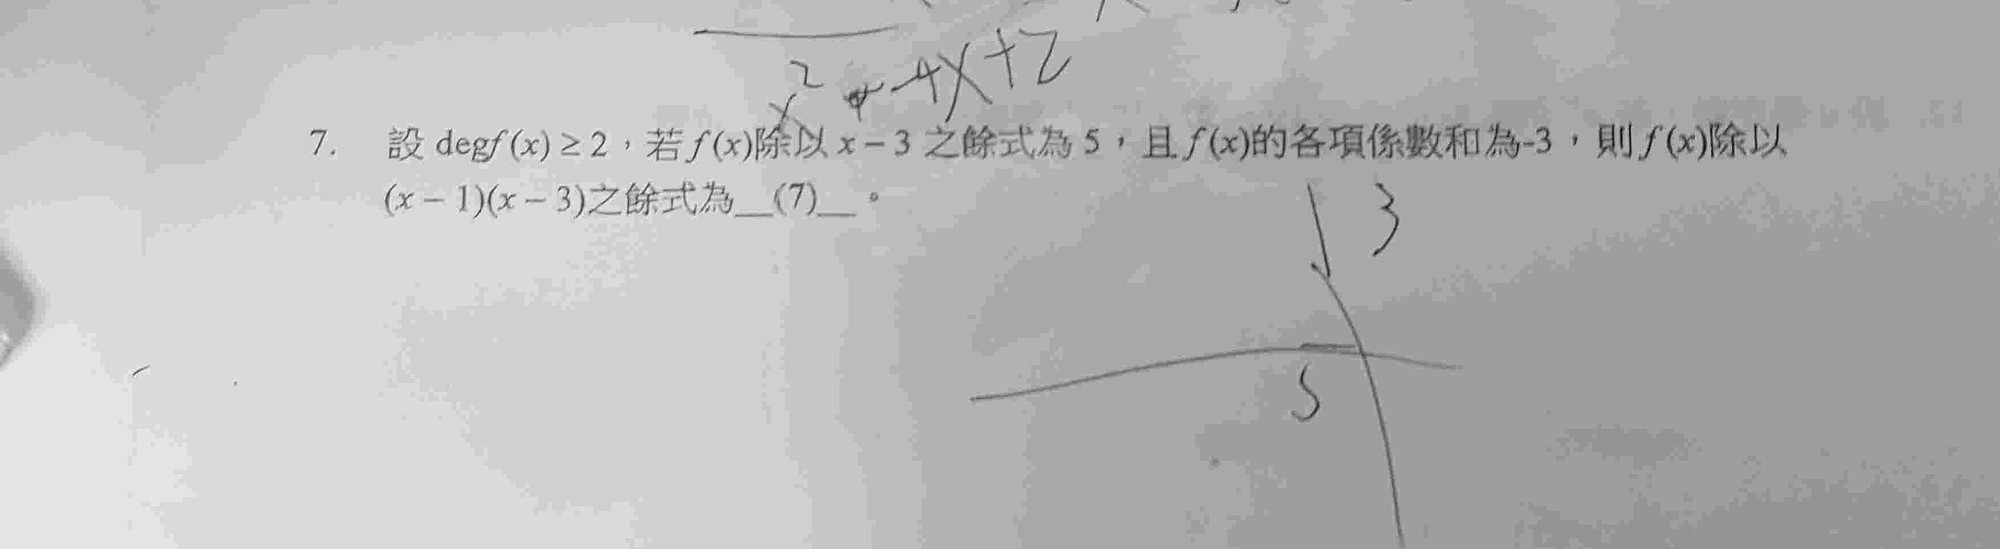 x² - 4x + 2
7. 設 deg f(x) ≥ 2，若 f(x)除以 x − 3 之餘式為 5，且 f(x)的各項係數和為-3，則 f(x)除以
(x − 1)(x − 3)之餘式為__(7)__。
3
5